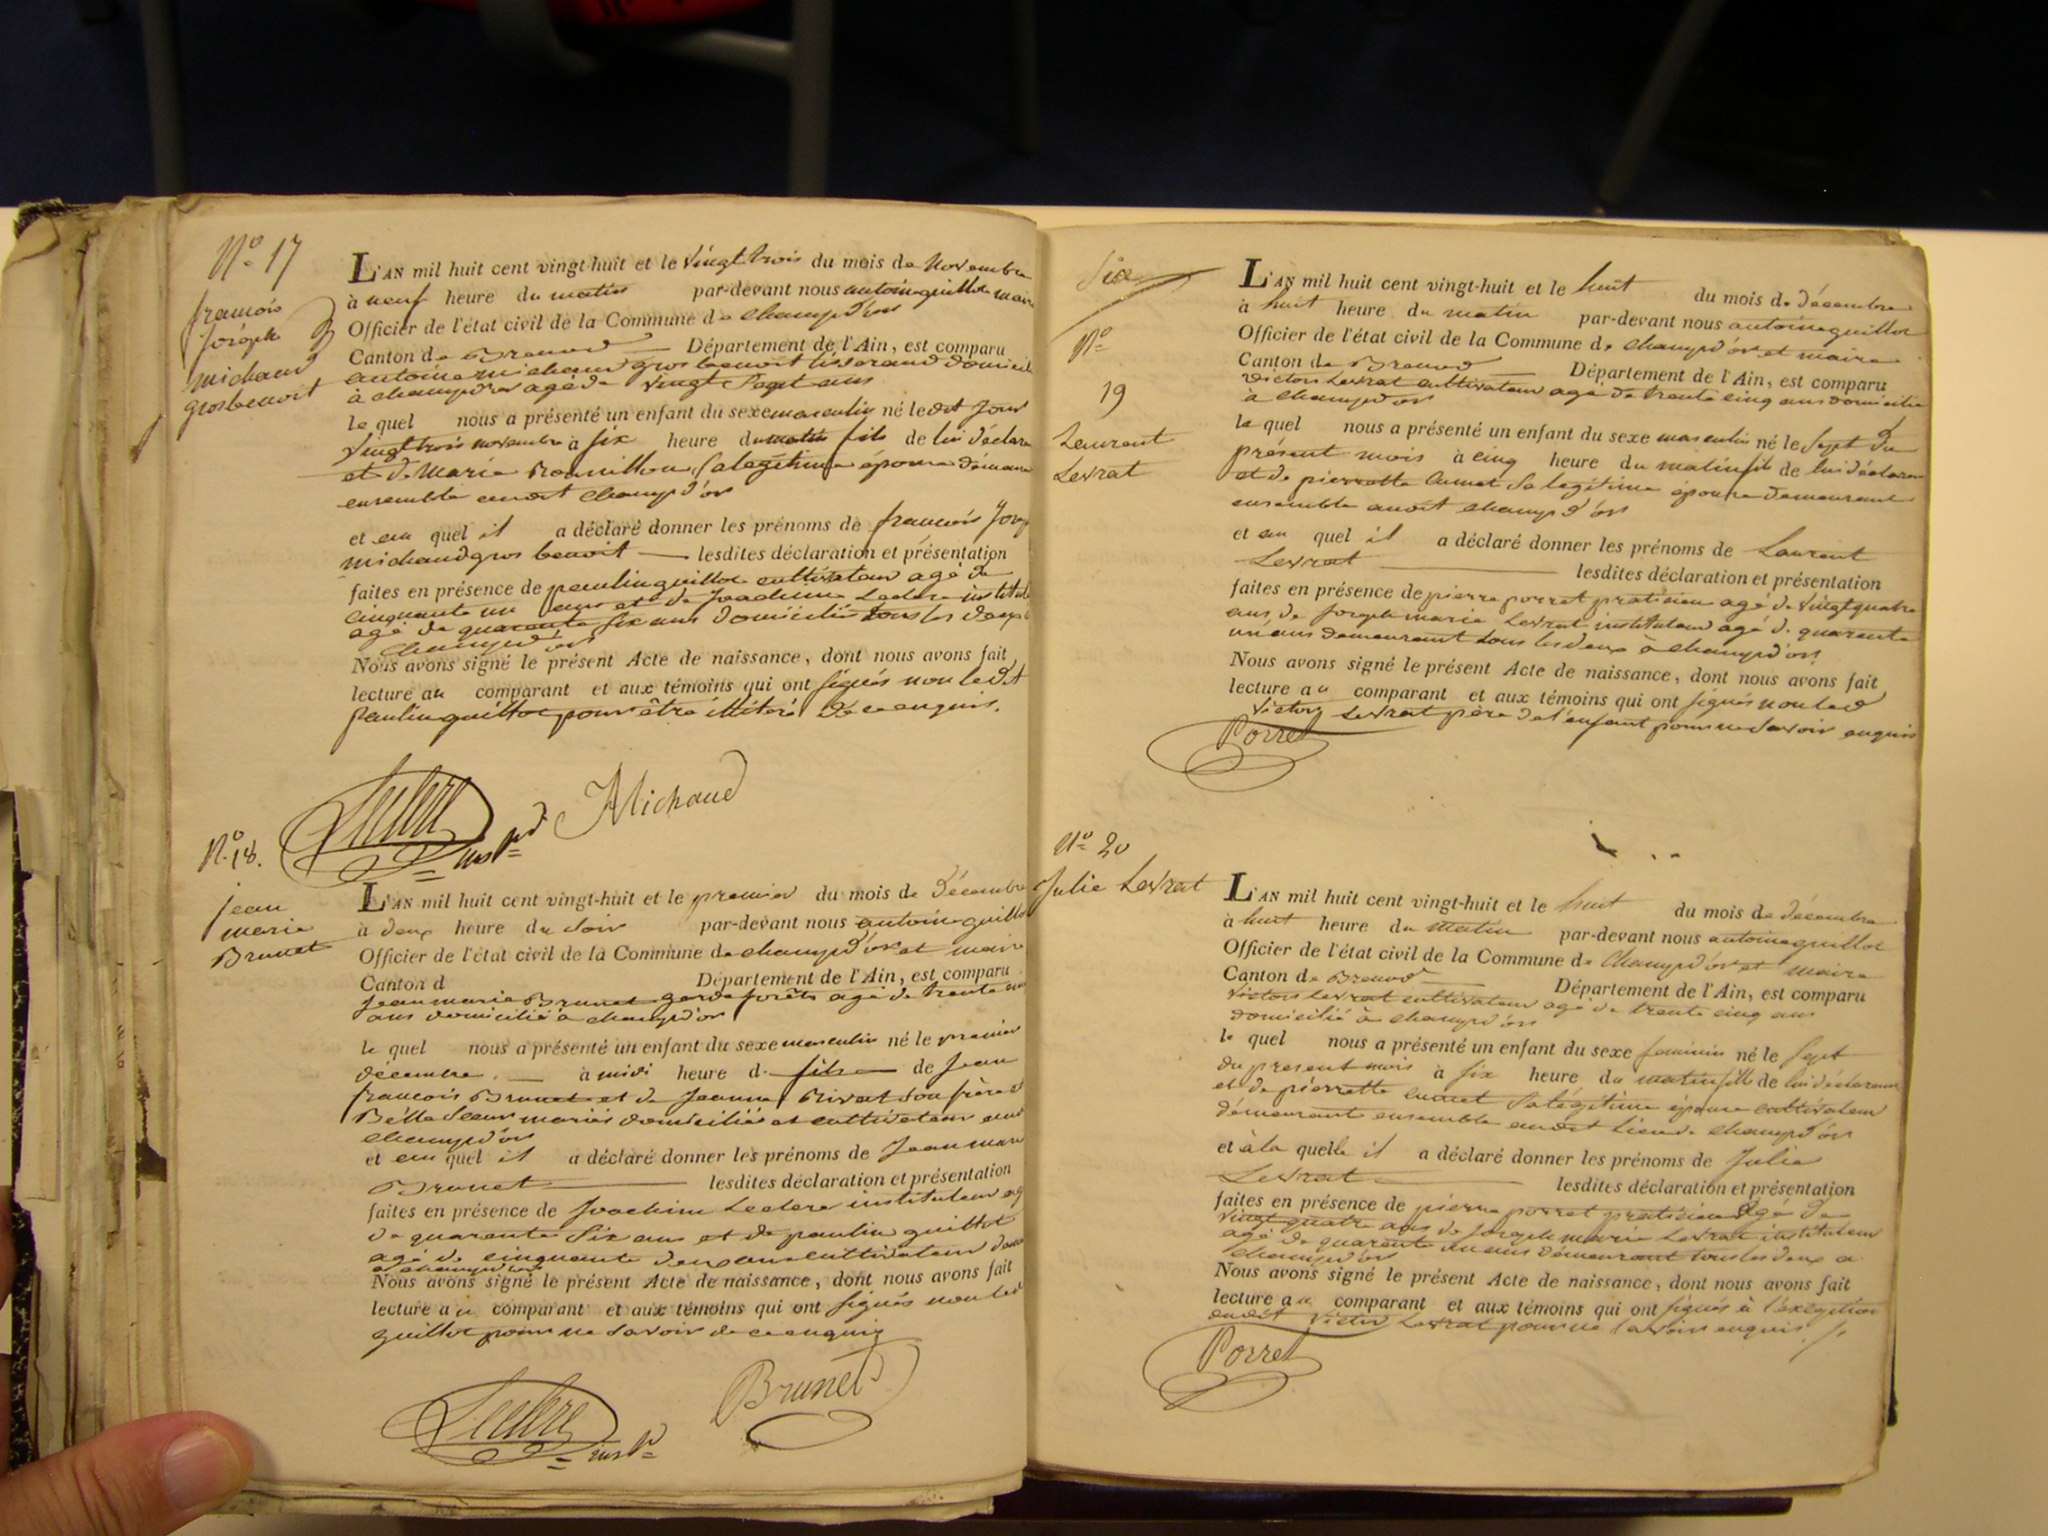 N.o 17
françois
Joseph
michaud
grosbenoit
L'AN mil huit cent vingt-huit et le vingt trois du mois de novembre
à neuf heure du matin par-devant nous antoine guillot maire
Officier de l'état civil de la Commune de champd'or
Canton de Brenod Département de l'Ain, est comparu
antoine michaud gros benoit tisserand domicil
à champd'or agé de vingt sept ans
le quel nous a présenté un enfant du sexe masculin né le dit jour
vingt trois novembre à six heure du matin fils de lui déclara
et de Marie Rouillon sa légitime épouse demeura
ensemble audit champd'or
et au quel il a déclaré donner les prénoms de françois Josep
michaud gros benoit lesdites déclaration et présentation
faites en présence de paulin guillot cultivateur agé de
cinquante un ans et de Joachim Leclerc institut
agé de quarante six ans domiciliés tous les deux à
champd'or
Nous avons signé le présent Acte de naissance, dont nous avons fait
lecture au comparant et aux témoins qui ont signés non ledit
paulin guillot pour être illitéré de ce enquis.
Leclerc Michaud
N.o 18.
jean
marie
Brunet
L'AN mil huit cent vingt-huit et le premier du mois de décembre
à deux heure du soir par-devant nous antoine guillot
Officier de l'état civil de la Commune de champd'or et maire
Canton d Département de l'Ain, est comparu
Jean marie Brunet garde forêts agé de trente
ans domicilié à champd'or
le quel nous a présenté un enfant du sexe masculin né le premier
décembre à midi heure d fils de Jean
françois Brunet et de Jeanne Rivat son frère et
Belle Soeur mariés domiciliés et cultivateur aud
champd'or
et au quel il a déclaré donner les prénoms de Jean mari
Brunet lesdites déclaration et présentation
faites en présence de Joachim Leclerc instituteur ag
de quarante six ans et de paulin guillot
agé de cinquante deux ans cultivateur
a champd'or
Nous avons signé le présent Acte de naissance, dont nous avons fait
lecture au comparant et aux témoins qui ont signés non led
guillot pour ne savoir de ce enquis
Leclerc Brunet
Six
N.o
19
Laurent
Levrat
L'AN mil huit cent vingt-huit et le huit du mois de décembre
à huit heure du matin par-devant nous antoine guillot
Officier de l'état civil de la Commune de champd'or et maire
Canton de Brenod Département de l'Ain, est comparu
victor Levrat cultivateur agé de trente cinq ans domicilié
à champd'or
le quel nous a présenté un enfant du sexe masculin né le sept du
présent mois à cinq heure du matin fils de lui déclaran
et de pierrette sa légitime épouse demeurant
ensemble audit champd'or
et au quel il a déclaré donner les prénoms de Laurent
Levrat lesdites déclaration et présentation
faites en présence de pierre porret praticien agé de vingt quatre
ans, de Joseph marie Levrat instituteur agé de quarante
un ans demeurant tous les deux à champd'or
Nous avons signé le présent Acte de naissance, dont nous avons fait
lecture au comparant et aux témoins qui ont signés non led
victor Levrat père de l'enfant pour ne savoir enquis
Porret
N.o 20
Julie Levrat
L'AN mil huit cent vingt-huit et le huit du mois de décembre
à huit heure du matin par-devant nous antoine guillot
Officier de l'état civil de la Commune de champd'or et maire
Canton de Brenod Département de l'Ain, est comparu
victor levrat cultivateur agé de trente cinq ans
domicilié à champd'or
le quel nous a présenté un enfant du sexe feminin né le sept
du present mois à six heure du matin fille de lui déclarant
et de pierrette sa légitime épouse cultivateur
demeurant ensemble audit lieu de champd'or
et à la quelle il a déclaré donner les prénoms de Julie
Levrat lesdites déclaration et présentation
faites en présence de pierre porret praticien agé de
vingt quatre ans de Joseph marie Levrat instituteur
agé de quarante un ans demeurant tous les deux a
champd'or
Nous avons signé le présent Acte de naissance, dont nous avons fait
lecture au comparant et aux témoins qui ont signés à l'exception
dudit victor Levrat pour ne savoir enquis
Porret